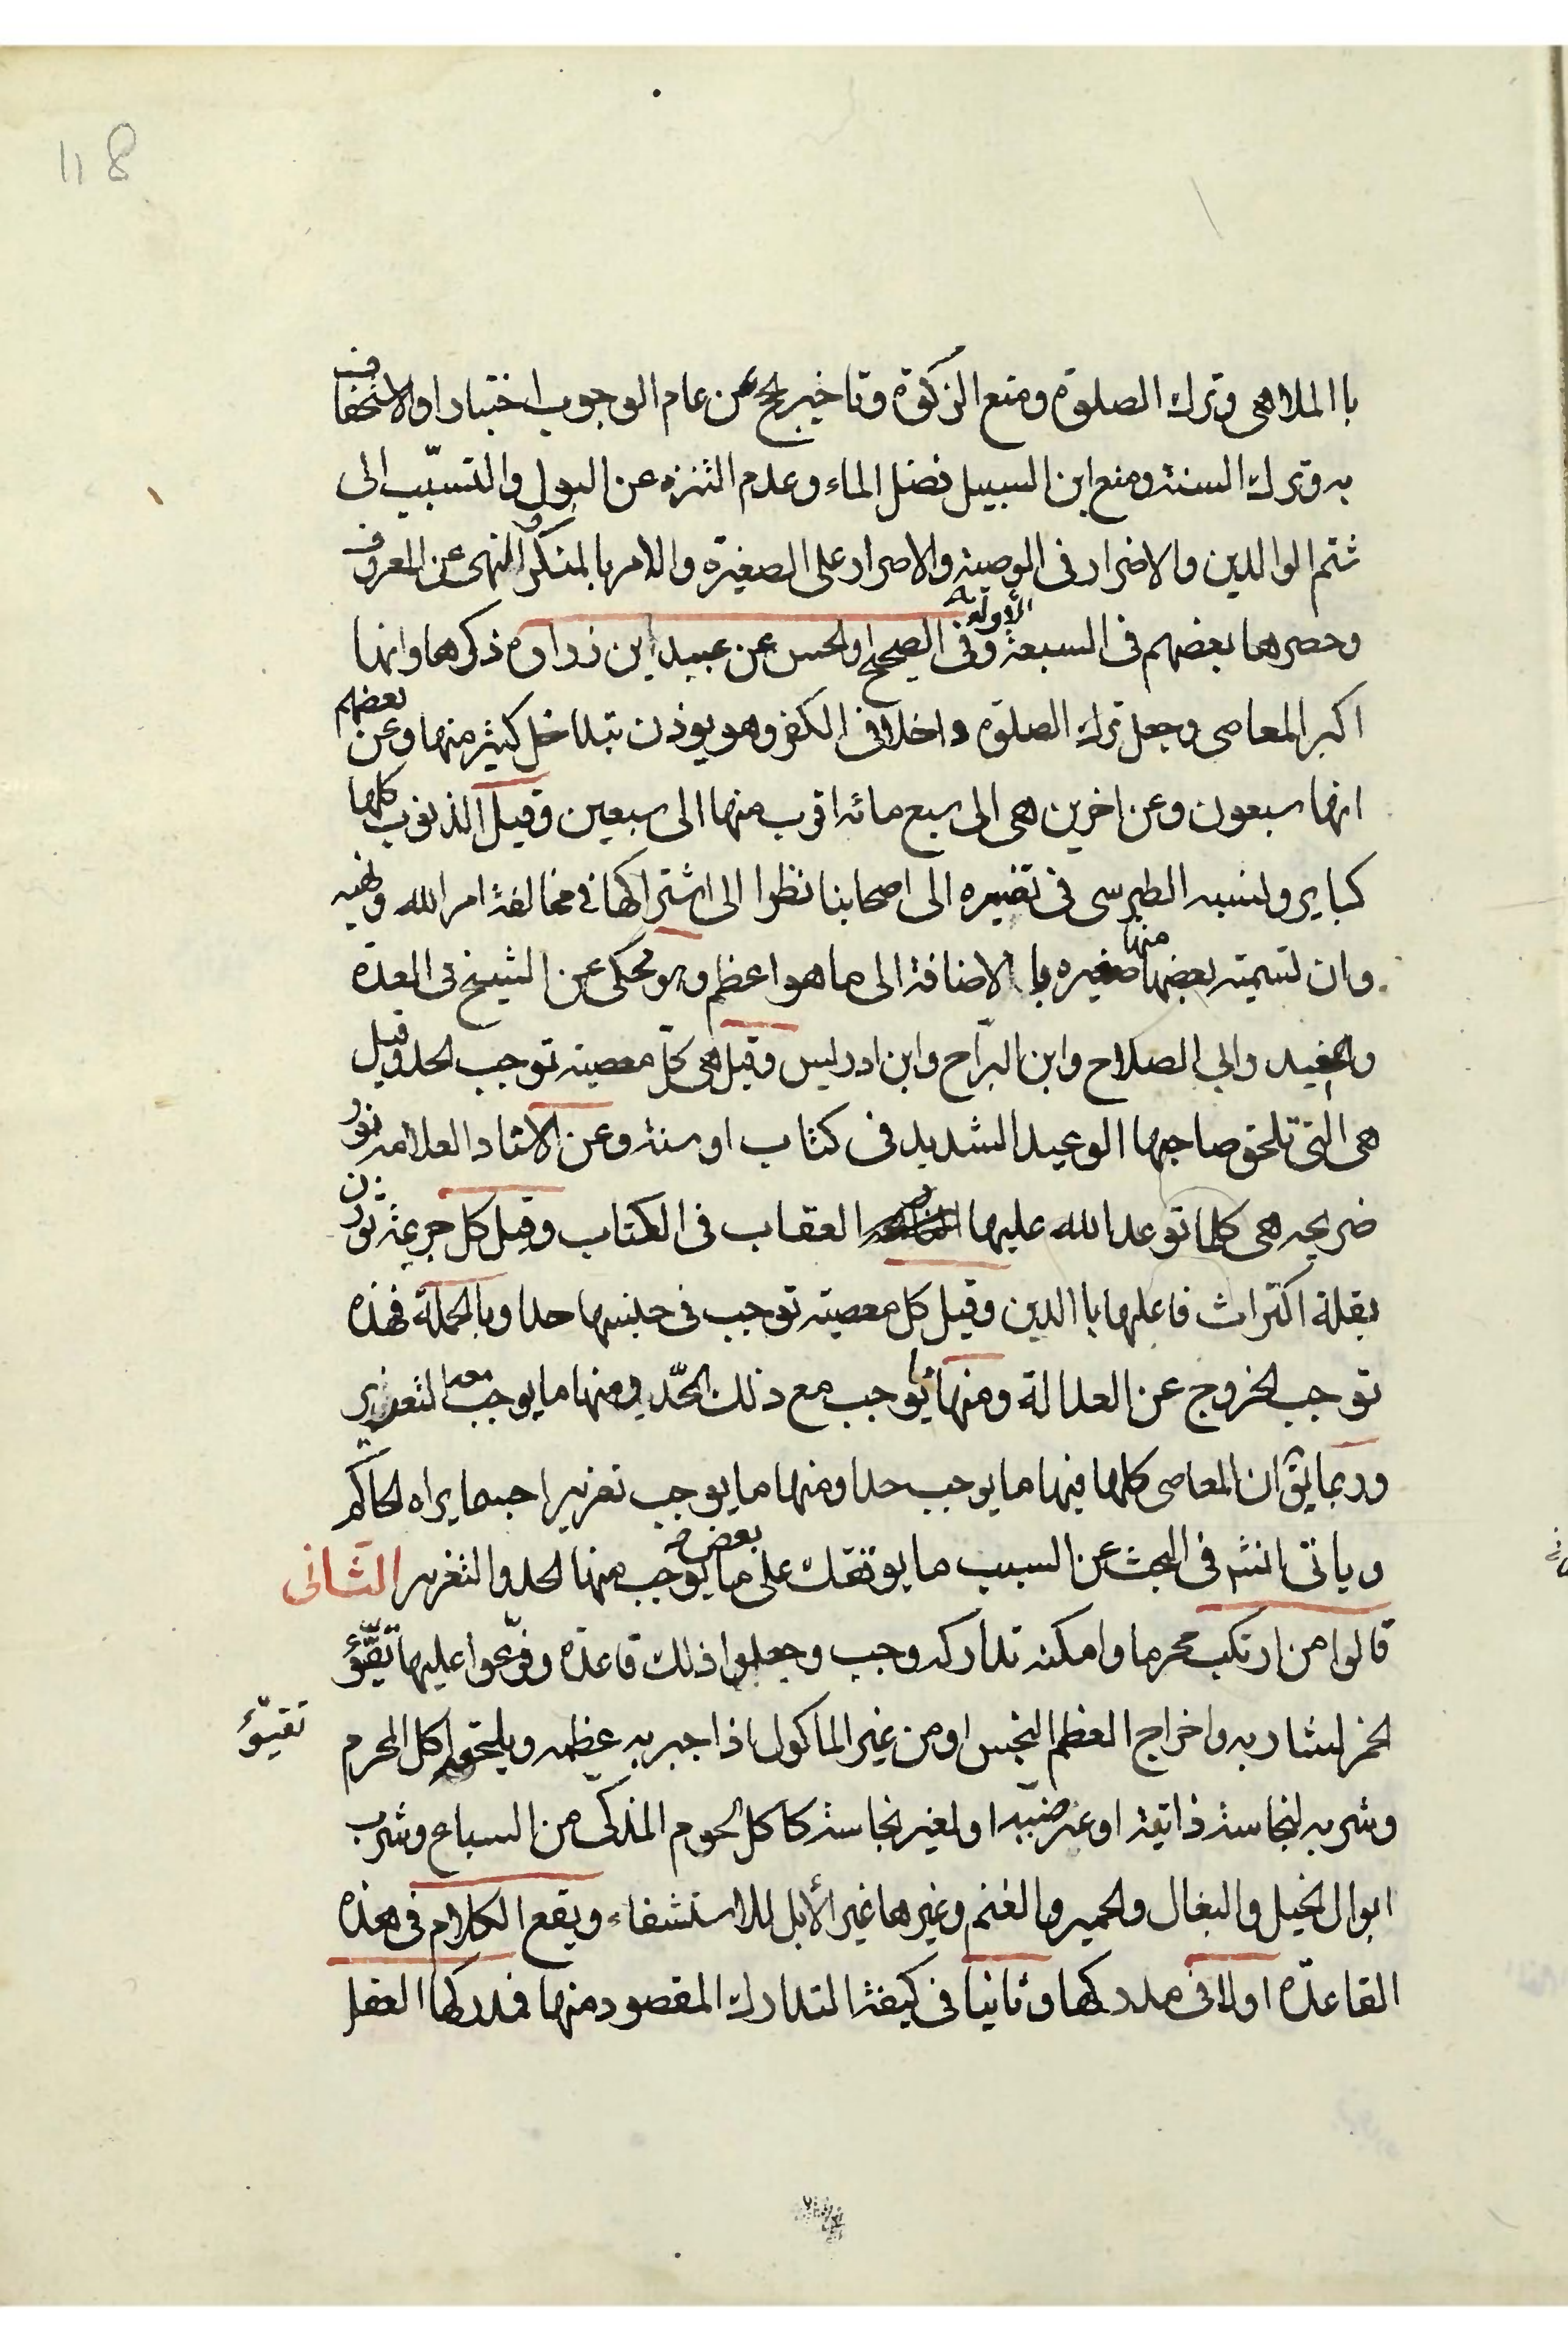 118
با الملاهى وترك الصلوة ومنع الزكوة وتاخير الحج عن عام الوجوب اختيارا والاستخفاف
به وترك السنة ومنع ابن السبيل فضل الماء وعدم التنزه عن البول والتسبّب الى
شتم الوالدين والاضرار فى الوصية والاصرار على الصغيرة والامر بالمنكر والنهى عن المعروف
وحصرها بعضهم فى السبعة الأولة وفى الصحيح او الحسن عن عبيد ابن زرارة ذكرها وانها
اكبر المعاصى وجعل ترك الصلوة داخلا فى الكفر وهو يوذن بتداخل كثير منها وعن بعضهم
انها سبعون وعن اخرين هى الى سبع مائة اقرب منها الى سبعين وقيل الذنوب كلها
كباير ونسبه الطبرسى فى تفسيره الى اصحابنا نظرا الى اشتراكها فى مخالفة امر الله ونهيه
وان تسمية بعضها منها صغيره با الاضافة الى ما هو اعظم وهو محكى عن الشيخ فى العدة
والمفيد وابي الصلاح وابن البرّاج وابن ادريس وقيل هى كلّ معصية توجب الحد وقيل
هى التى تلحق صاحبها الوعيد الشديد فى كتاب او سنة وعن الاستاد العلامه نور
ضريحه هى كلما توعد الله عليها العقاب فى الكتاب وقيل كل جريمة توذن
بقلة اكتراث فاعلها با الدين وقيل كل معصية توجب فى جنسها حدا وبالجملة فهذه
توجب الخروج عن العدالة ومنها ما يوجب مع ذلك الحّد ومنها ما يوجب معه التعزير
وربما يقٓ ان المعاصى كلها فيها ما يوجب حدا ومنها ما يوجب تعزيرا حسبما يراه الحاكم
وياتى انشٓ فى البحث عن السبب ما يوقفك على بعض ما يوجب منها الحد والتعزير الثّانى
قالوا من ارتكب محرما وامكنه تداركه وجب وجعلوا ذلك قاعدة وفرّعوا عليها تقيّؤ
تقيوء
الخمر لشاربه واخراج العظم النجس او من غير الماكول اذا جبر به عظمه ويلحق به اكل المحرم
وشربه لنجاسة ذاتية او عرضيّه او لغير نجاسة كاكل لحوم المذكّى من السباع وشرب
ابوال الخيل والبغال والحمير والغنم وغيرها غير الأبل للاستشفاء ويقع الكلام فى هذه
القاعدّة اولا فى مدركها وثانيا فى كيفية التدارك المقصود منها فمدركها العقل